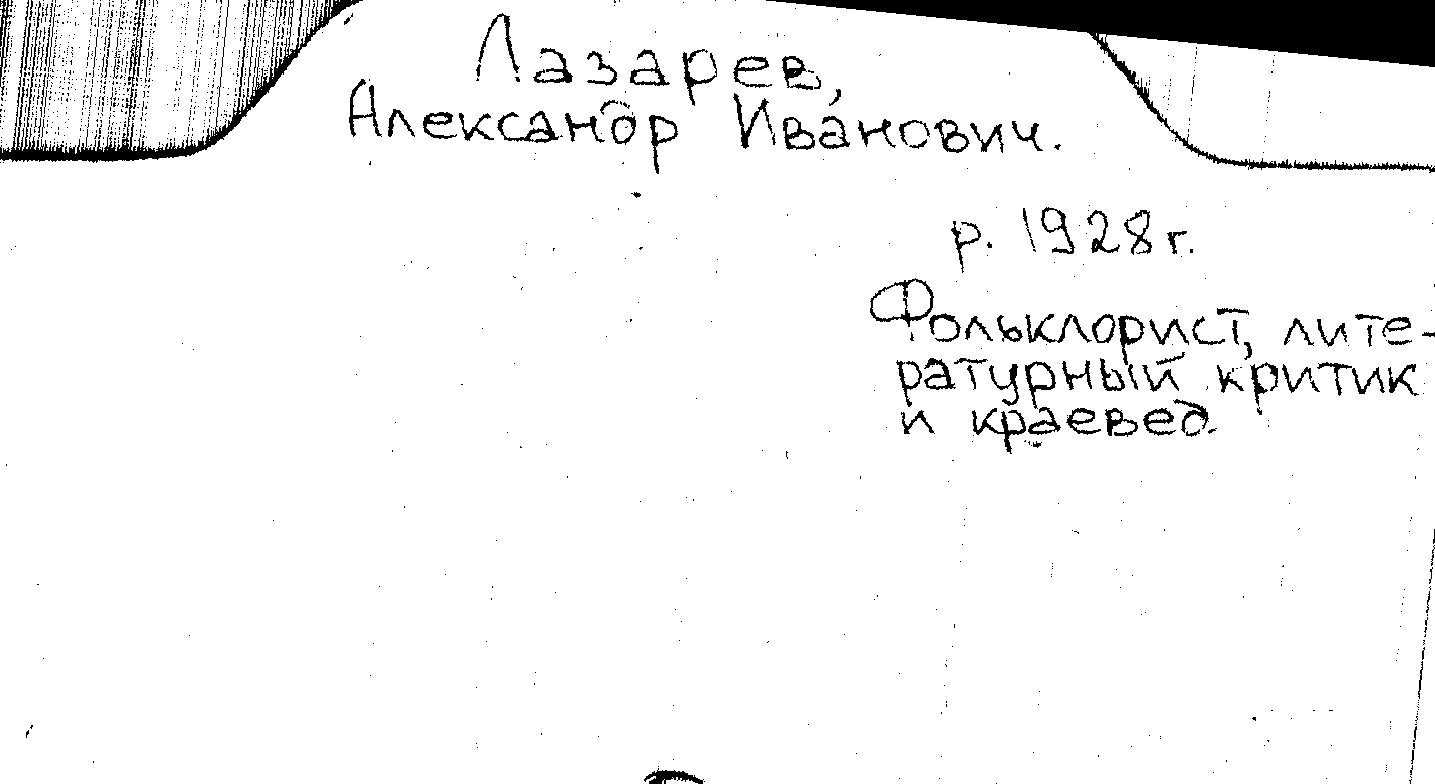 Лазарев,
Александр Иванович.
р. 1928 г.
Фольклорист, лите-
ратурный критик
и краевед.